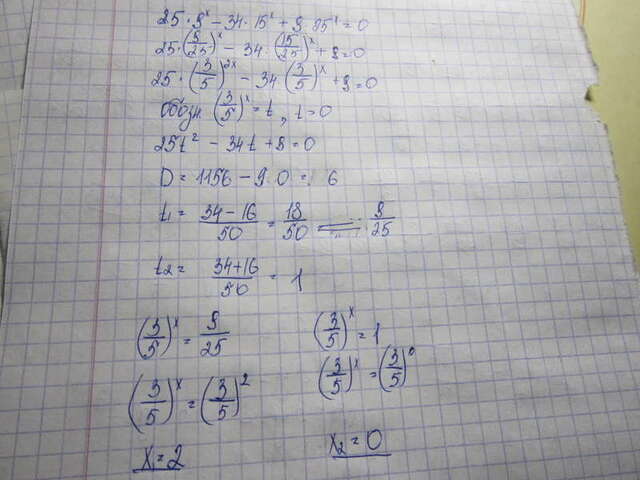 25 · 9ˣ − 34 · 15ˣ + 9 · 25ˣ = 0
25 · (9/25)ˣ − 34 · (15/25)ˣ + 9 = 0
25 · (3/5)²ˣ − 34 (3/5)ˣ + 9 = 0
Обозн. (3/5)ˣ = t, t = 0
25t² − 34t + 9 = 0
D = 1156 − 9 0 = 6
t₁ = (34 − 16)/50 = 18/50 = 9/25
t₂ = (34 + 16)/50 = 1
(3/5)ˣ = 9/25
(3/5)ˣ = (3/5)²
x = 2
(3/5)ˣ = 1
(3/5)ˣ = (3/5)⁰
x₂ = 0